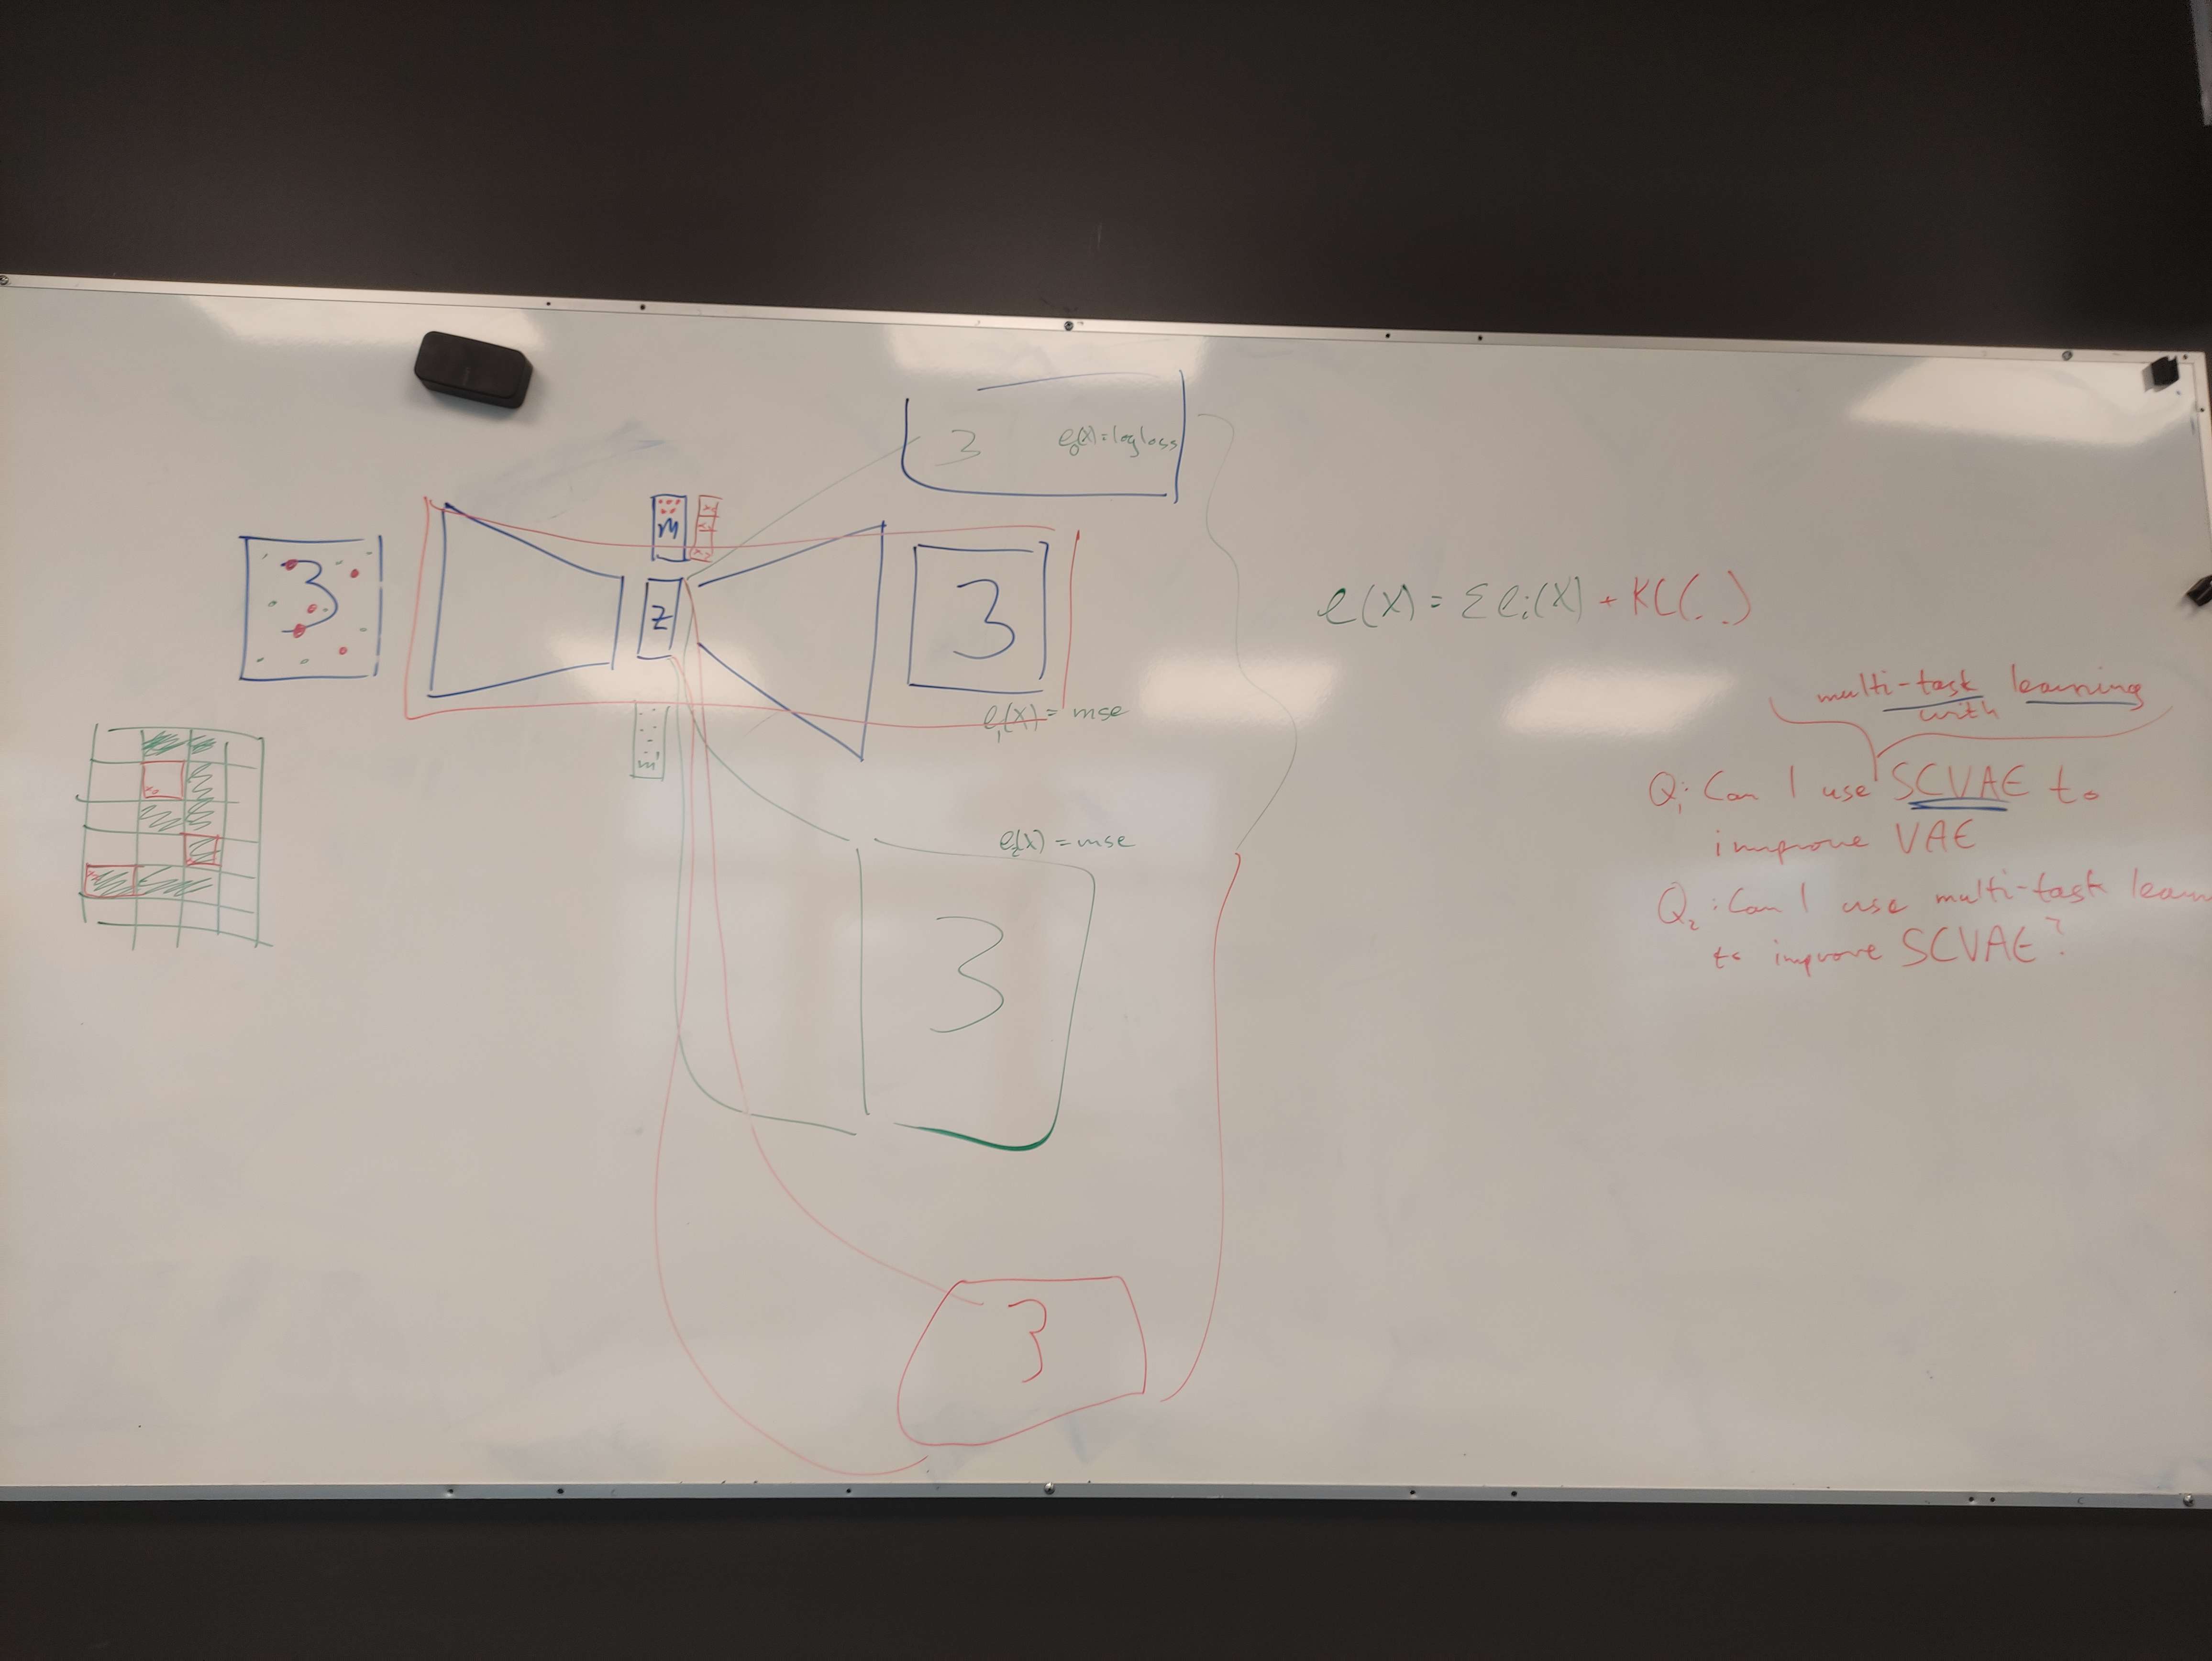 3
e₀(X) = log loss
m
3
z
3
e₁(X) = mse
m'
e₂(X) = mse
3
3
e(X) = Σeᵢ(X) + KL(. .)
multi-task learning
with
Q₁: Can I use SCVAE to
improve VAE
Q₂: Can I use multi-task learn
to improve SCVAE?